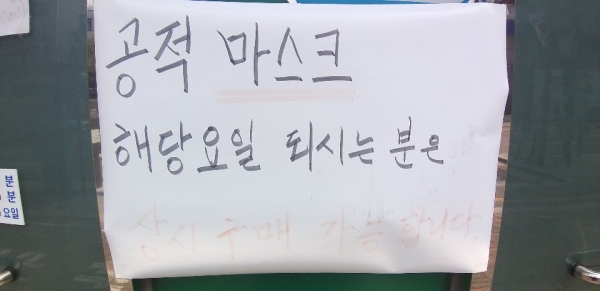 공적 마스크
해당요일 되시는 분은
상시 구매 가능합니다.
분
분
요일